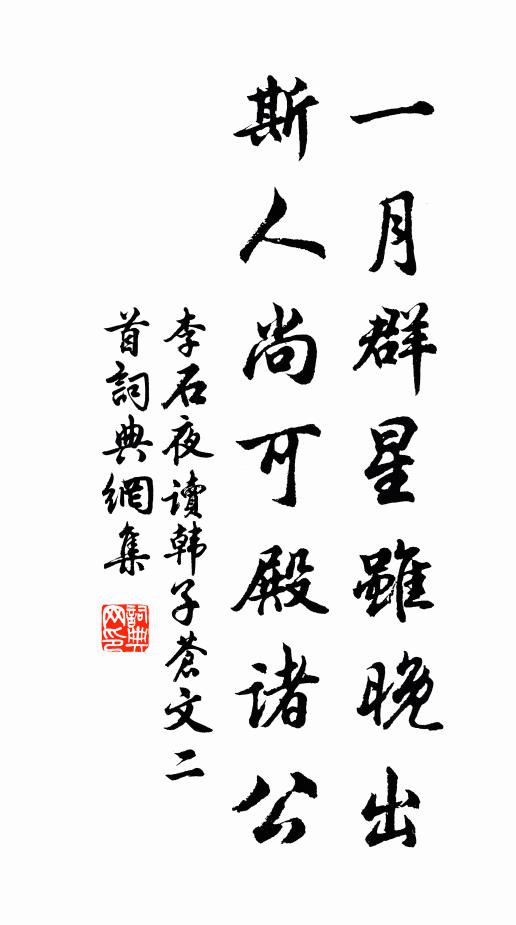 一月群星雖晚出
斯人尚可殿诸公
李石夜读韩子蒼文二
首詞典網集
詞典
网印